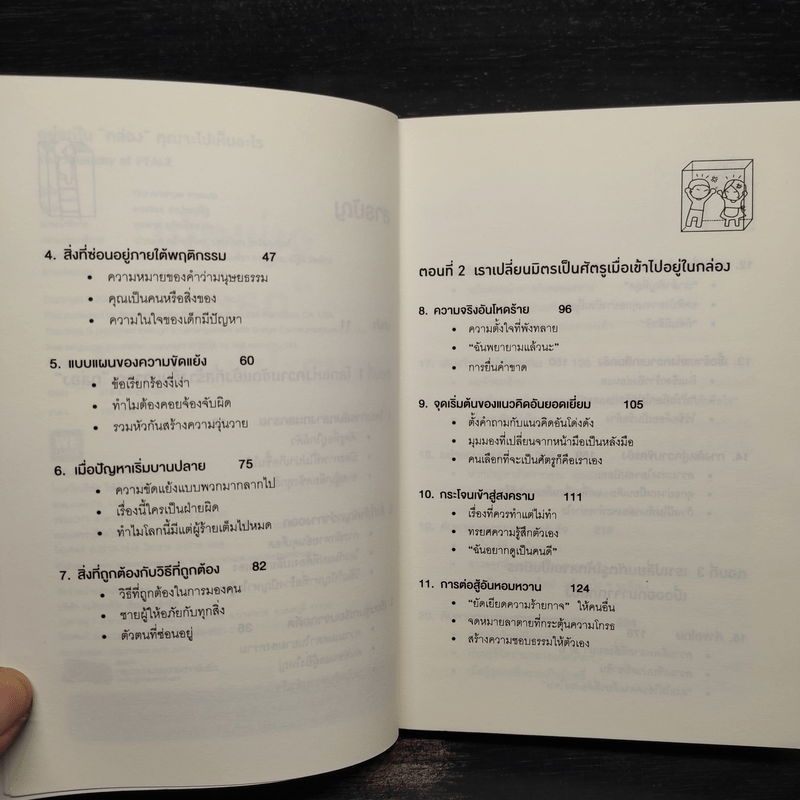 4. สิ่งที่ซ่อนอยู่ภายใต้พฤติกรรม 47
• ความหมายของคำว่ามนุษยธรรม
• คุณเป็นคนหรือสิ่งของ
• ความในใจของเด็กมีปัญหา
5. แบบแผนของความขัดแย้ง 60
• ข้อเรียกร้องงี่เง่า
• ทำไมต้องคอยจ้องจับผิด
• รวมหัวกันสร้างความวุ่นวาย
6. เมื่อปัญหาเริ่มบานปลาย 75
• ความขัดแย้งแบบพวกมากลากไป
• เรื่องนี้ใครเป็นฝ่ายผิด
• ทำไมโลกนี้มีแต่ผู้ร้ายเต็มไปหมด
7. สิ่งที่ถูกต้องกับวิธีที่ถูกต้อง 82
• วิธีที่ถูกต้องในการมองคน
• ชายผู้ให้อภัยกับทุกสิ่ง
• ตัวตนที่ซ่อนอยู่
ตอนที่ 2 เราเปลี่ยนมิตรเป็นศัตรูเมื่อเข้าไปอยู่ในกล่อง
8. ความจริงอันโหดร้าย 96
• ความตั้งใจที่พังทลาย
• "ฉันพยายามแล้วนะ"
• การยื่นคำขาด
9. จุดเริ่มต้นของแนวคิดอันยอดเยี่ยม 105
• ตั้งคำถามกับแนวคิดอันโด่งดัง
• มุมมองที่เปลี่ยนจากหน้ามือเป็นหลังมือ
• คนเลือกที่จะเป็นศัตรูก็คือเราเอง
10. กระโจนเข้าสู่สงคราม 111
• เรื่องที่ควรทำแต่ไม่ทำ
• ทรยศความรู้สึกตัวเอง
• "ฉันอยากดูเป็นคนดี"
11. การต่อสู้อันหอมหวาน 124
• "ยัดเยียดความร้ายกาจ" ให้คนอื่น
• จดหมายลาตายที่กระตุ้นความโกรธ
• สร้างความชอบธรรมให้ตัวเอง